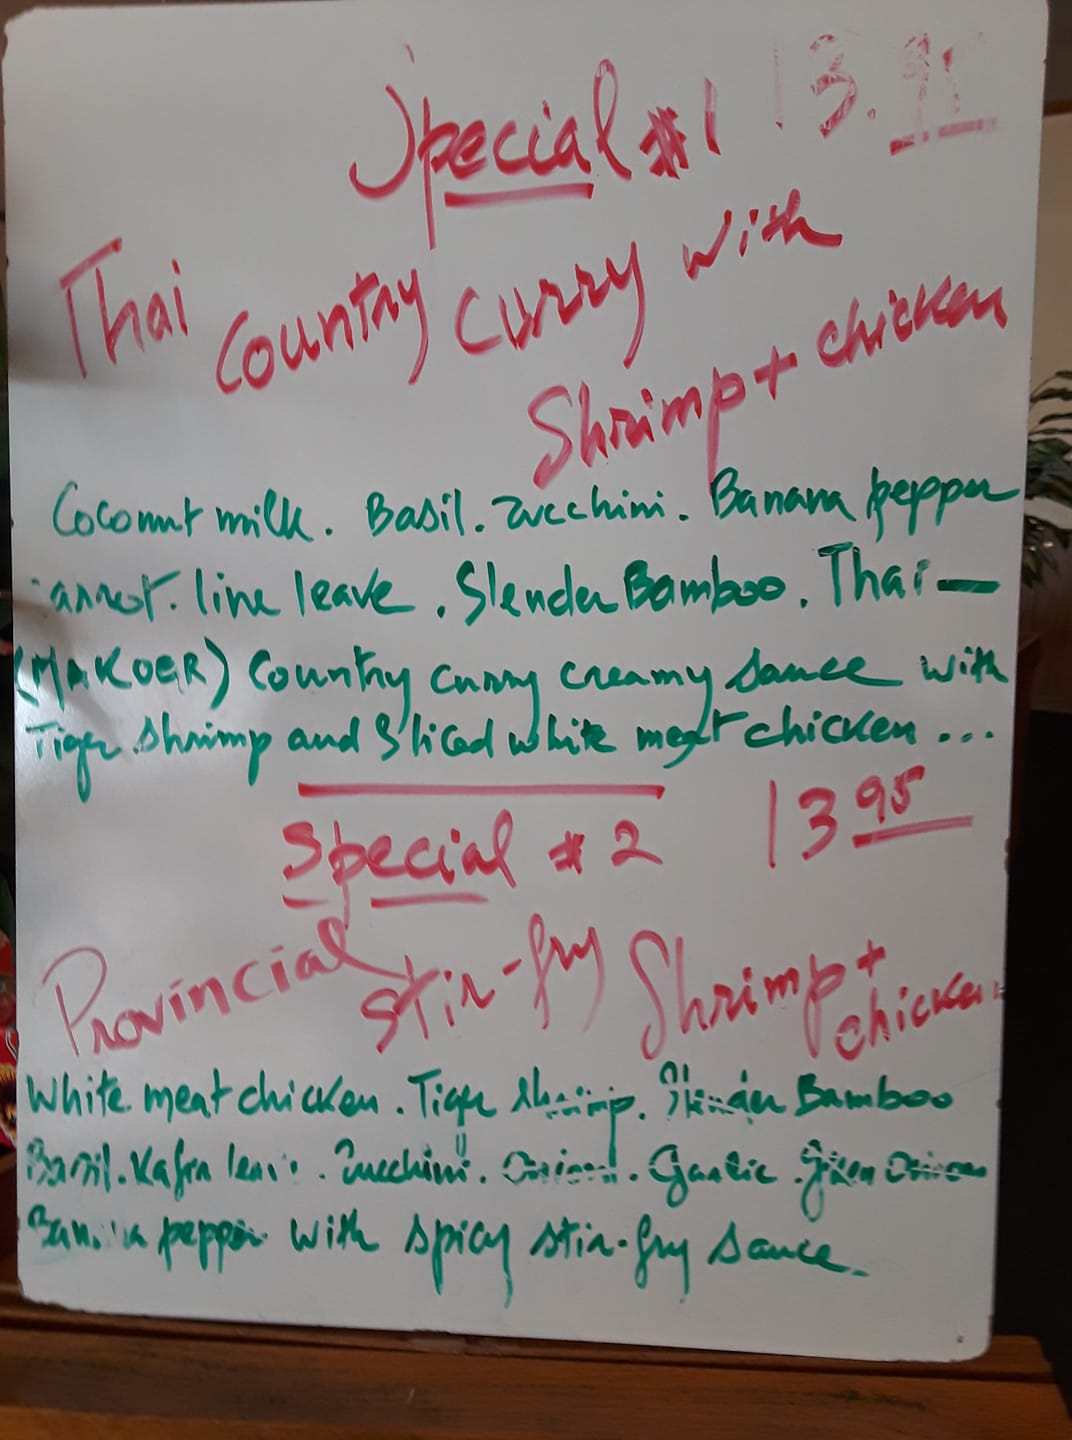 Special #1 13.95
Thai Country Curry with
Shrimp + chicken
Coconut milk. Basil. Zucchini. Banana pepper
carrot. line leave. Slender Bamboo. Thai —
(MAKOER) Country curry creamy sauce with
Tiger shrimp and Sliced white meat chicken ...
Special #2 13 95
Provincial stir-fry Shrimp +
chicken
White meat chicken. Tiger shrimp. Slender Bamboo
Basil. Kafra leave. Zucchini. Onion. Garlic. green Onion
Banana pepper with spicy stir-fry sauce.